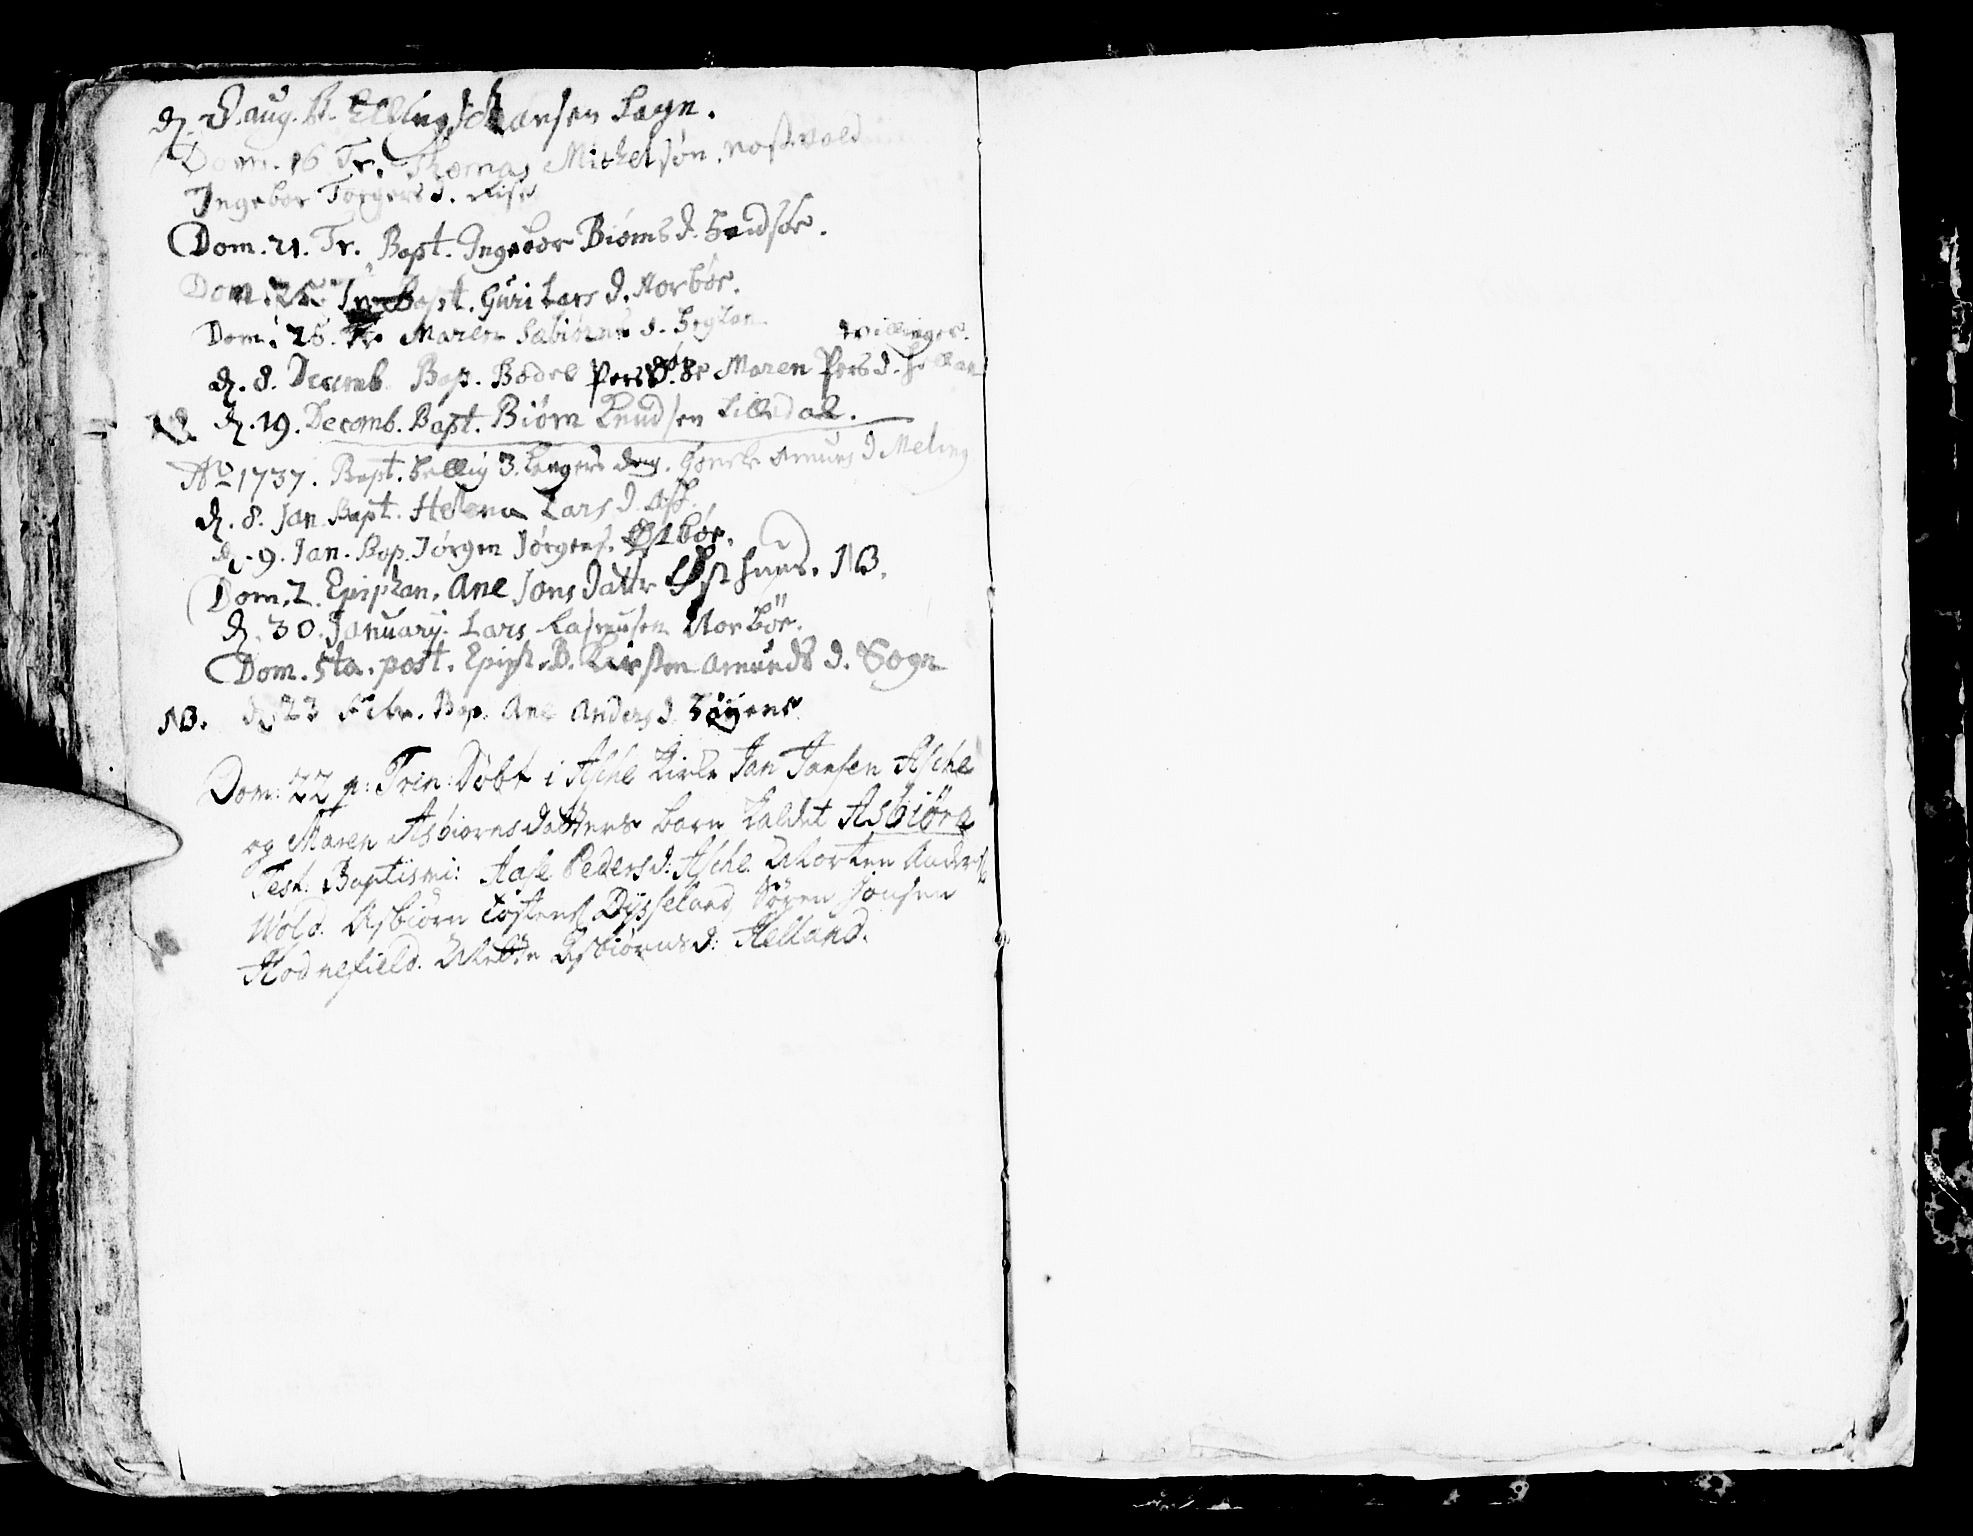 d. aug. B. Elling Sogn.
Dom. 16 Tr. Thomas Michelsøn.
Ingebor Torgers d. Rise
Dom. 21. Tr. Bapt. Ingebor Biørns d.
Dom. 25. Tr. Bapt. Guri Lars d. Norbøe.
Dom. 26. Tr. Maren d.
tvillinger.
d. 8. Decemb. Bap. Bodel Pers d. Maren Pers d. Hellan
d. 19. Decemb. Bapt. Biørn Knudsen Lilledal.
Ao 1737. Bapt. hellig 3. Kongers dag. Amunds d Meling
d. 8. Jan. Bapt. Helena Lars d. Ask.
d. 9. Jan. Bap. Jørgen Jørgens. Østbøe.
Dom. 2. Epiphan. Ane Jons datter Østhuus. NB.
d. 30. January. Lars Rasmusen Norbøe.
Dom. 5ta. post. Epiph. B. Kirsten Amunds d. Sogn
NB. d. 23 Febr. Bap. Ane Anders d.
Dom: 22 p: Trin: Døbt i Asche Kirke Jan Jansen Asche
og Maren Asbiørnsdatters barn kaldet Asbiørn
Test: Baptismi: Aase Pedersd: Asche. Morten Anders
Wold. Asbiørn Tostens Dysseland, Søren Jonsen
Hodnefield. Mette Asbiørnsd: Helland.